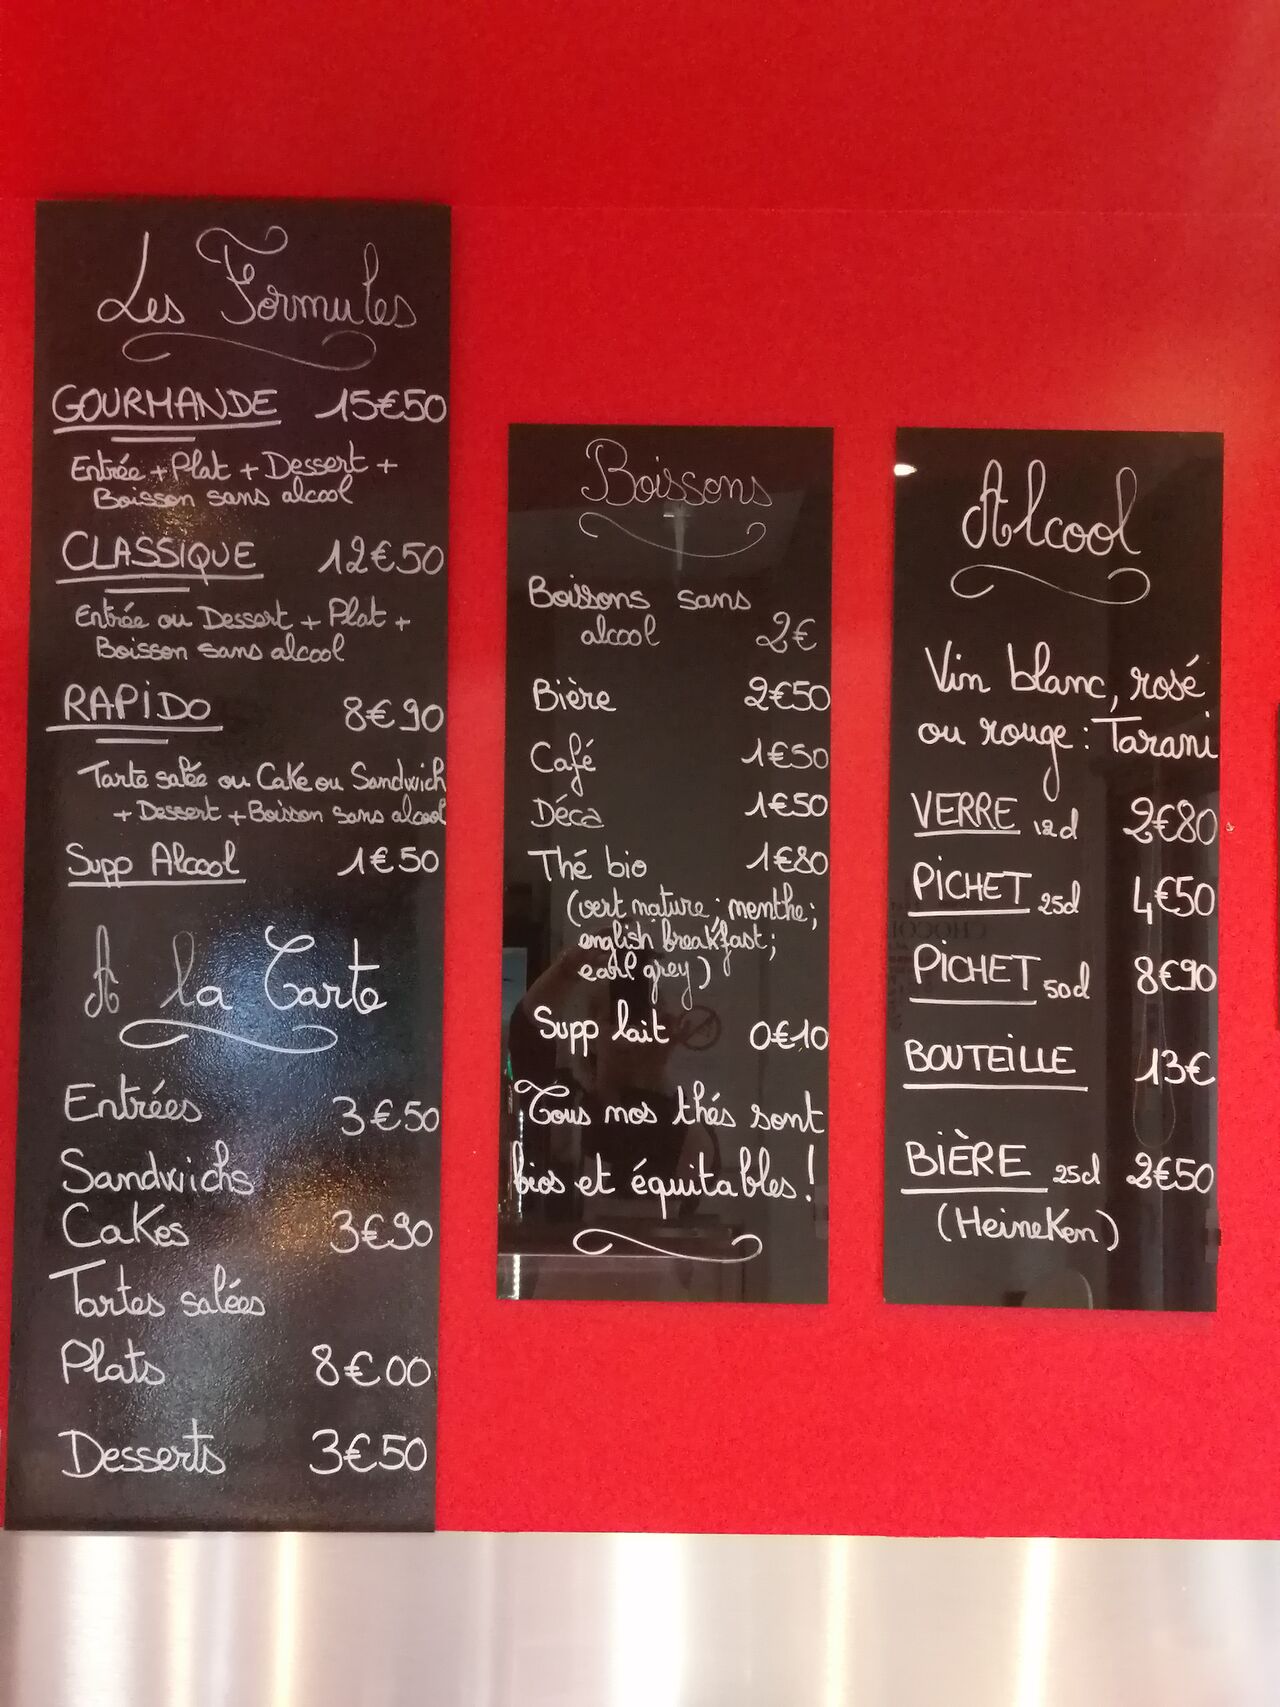 Les Formules
GOURMANDE 15€50
Entrée + Plat + Dessert +
Boisson sans alcool
CLASSIQUE 12€50
Entrée ou Dessert + Plat +
Boisson sans alcool
RAPIDO 8€90
Tarte salée ou Cake ou Sandwich
+ Dessert + Boisson sans alcool
Supp Alcool 1€50
A la Carte
Entrées 3€50
Sandwichs
Cakes 3€90
Tartes salées
Plats 8€00
Desserts 3€50
Boissons
Boissons sans
alcool 2€
Bière 2€50
Café 1€50
Déca 1€50
Thé bio 1€80
(vert nature; menthe;
english breakfast;
earl grey)
Supp lait 0€10
Tous nos thés sont
bios et équitables!
Alcool
Vin blanc, rosé
ou rouge : Tarani
VERRE 12cl 2€80
PICHET 25cl 4€50
PICHET 50cl 8€90
BOUTEILLE 13€
BIÈRE 25cl 2€50
(Heineken)